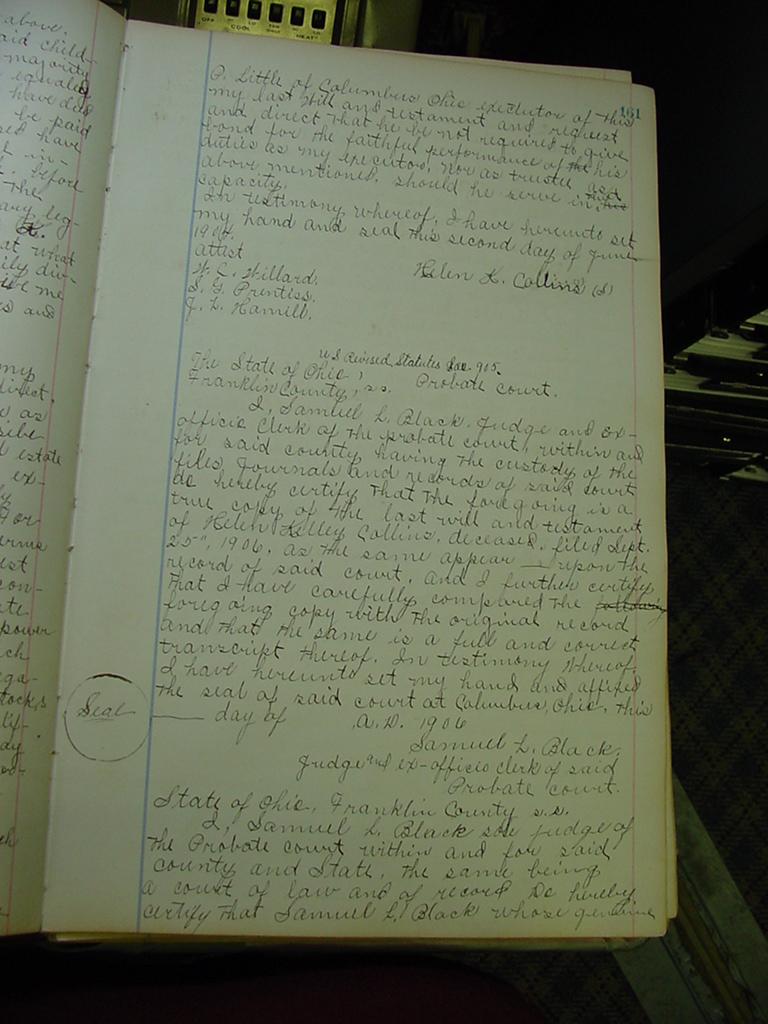 above,
aid child-
majority
equaled
have died
be paid
sed have
l in-
before
The
ary leg-
at what
ily div-
ibe me
s and
my
direct
as
sibe
estate
ex-
or
erms
est
con-
ate
power
ch
ga-
tocks
dy
OFF COOL HEAT
161
P. Little of Columbus Ohio executor of this
my last Will and testament and request
and direct that he be not required to give
bond for the faithful performance of the his
duties as my executor, nor as trustee, as
above mentioned, should he serve in this
capacity.
In testimony whereof, I have hereunto set
my hand and seal this second day of June
1904.
Helen K. Collins (S)
attest
W. C. Willard.
S. G. Prentiss.
J. L. Hamill.
U.S Revised Statutes Sec 905.
The State of Ohio,
Franklin County, s.s. Probate court.
I, Samuel L. Black, Judge and ex-
officio Clerk of the probate court, within and
for said county having the custody of the
files, Journals and records of said court
do hereby certify that the foregoing is a
true copy of the last will and testament
of Helen Kelley Collins, deceased, filed Sept.
25", 1906, as the same appear — upon the
record of said court, and I further certify
that I have carefully compared the following
foregoing copy with the original record
and that the same is a full and correct
transcript thereof. In testimony whereof,
I have hereunto set my hand and affixed
the seal of said court at Columbus, Ohio, this
Seal
—— day of A.D. 1906
Samuel L. Black.
Judge and ex-officio clerk of said
Probate court.
State of Ohio, Franklin County s.s.
I, Samuel L. Black sole judge of
the Probate court within and for said
county and State, the same being
a court of law and of record Do hereby
certify that Samuel L. Black whose genuine